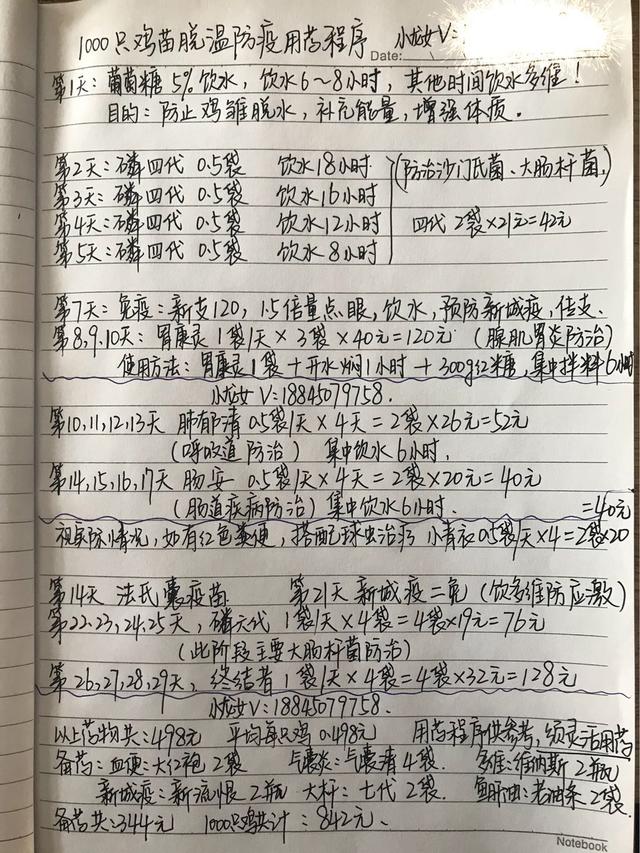 1000只鸡苗脱温防疫用药程序 小龙女V:
Date:
第1天：葡萄糖 5% 饮水，饮水6～8小时，其他时间饮水多维！
目的：防止鸡雏脱水，补充能量，增强体质。
第2天：磷四代 0.5袋 饮水18小时 (防治沙门氏菌、大肠杆菌)
第3天：磷四代 0.5袋 饮水16小时
第4天：磷四代 0.5袋 饮水12小时 四代 2袋×21元=42元
第5天：磷四代 0.5袋 饮水8小时
第7天：免疫：新支120，1.5倍量点眼，饮水，预防新城疫，传支.
第8,9,10天：胃康灵 1袋/天×3袋×40元=120元 (腺肌胃炎防治)
使用方法：胃康灵1袋+开水焖1小时+300g红糖，集中拌料6小时
小龙女V:18845079758.
第10,11,12,13天 肺郁清 0.5袋/天×4天=2袋×26元=52元
(呼吸道防治) 集中饮水6小时.
第14,15,16,17天 肠安 0.5袋/天×4天=2袋×20元=40元
(肠道疾病防治) 集中饮水6小时. =40元
视实际情况，如有红色粪便，搭配球虫治疗 小青衣0.5袋/天×4=2袋×20
第14天 法氏囊疫苗 第21天 新城疫二免 (饮多维防应激)
第22,23,24,25天，磷六代 1袋/天×4袋=4袋×19元=76元
(此阶段主要大肠杆菌防治)
第26,27,28,29天，终结者 1袋/天×4袋=4袋×32元=128元
小龙女V:18845079758.
以上药物共：498元 平均每只鸡0.498元 用药程序供参考，须灵活用药
备药：血便：大红袍 2袋 气囊炎：气囊清 4袋. 多维：维纳斯 2瓶
新城疫：新流恨 2瓶 大杆：七代 2袋. 鱼肝油：老油条 2袋.
备药共：344元 1000只鸡共计：842元.
Notebook